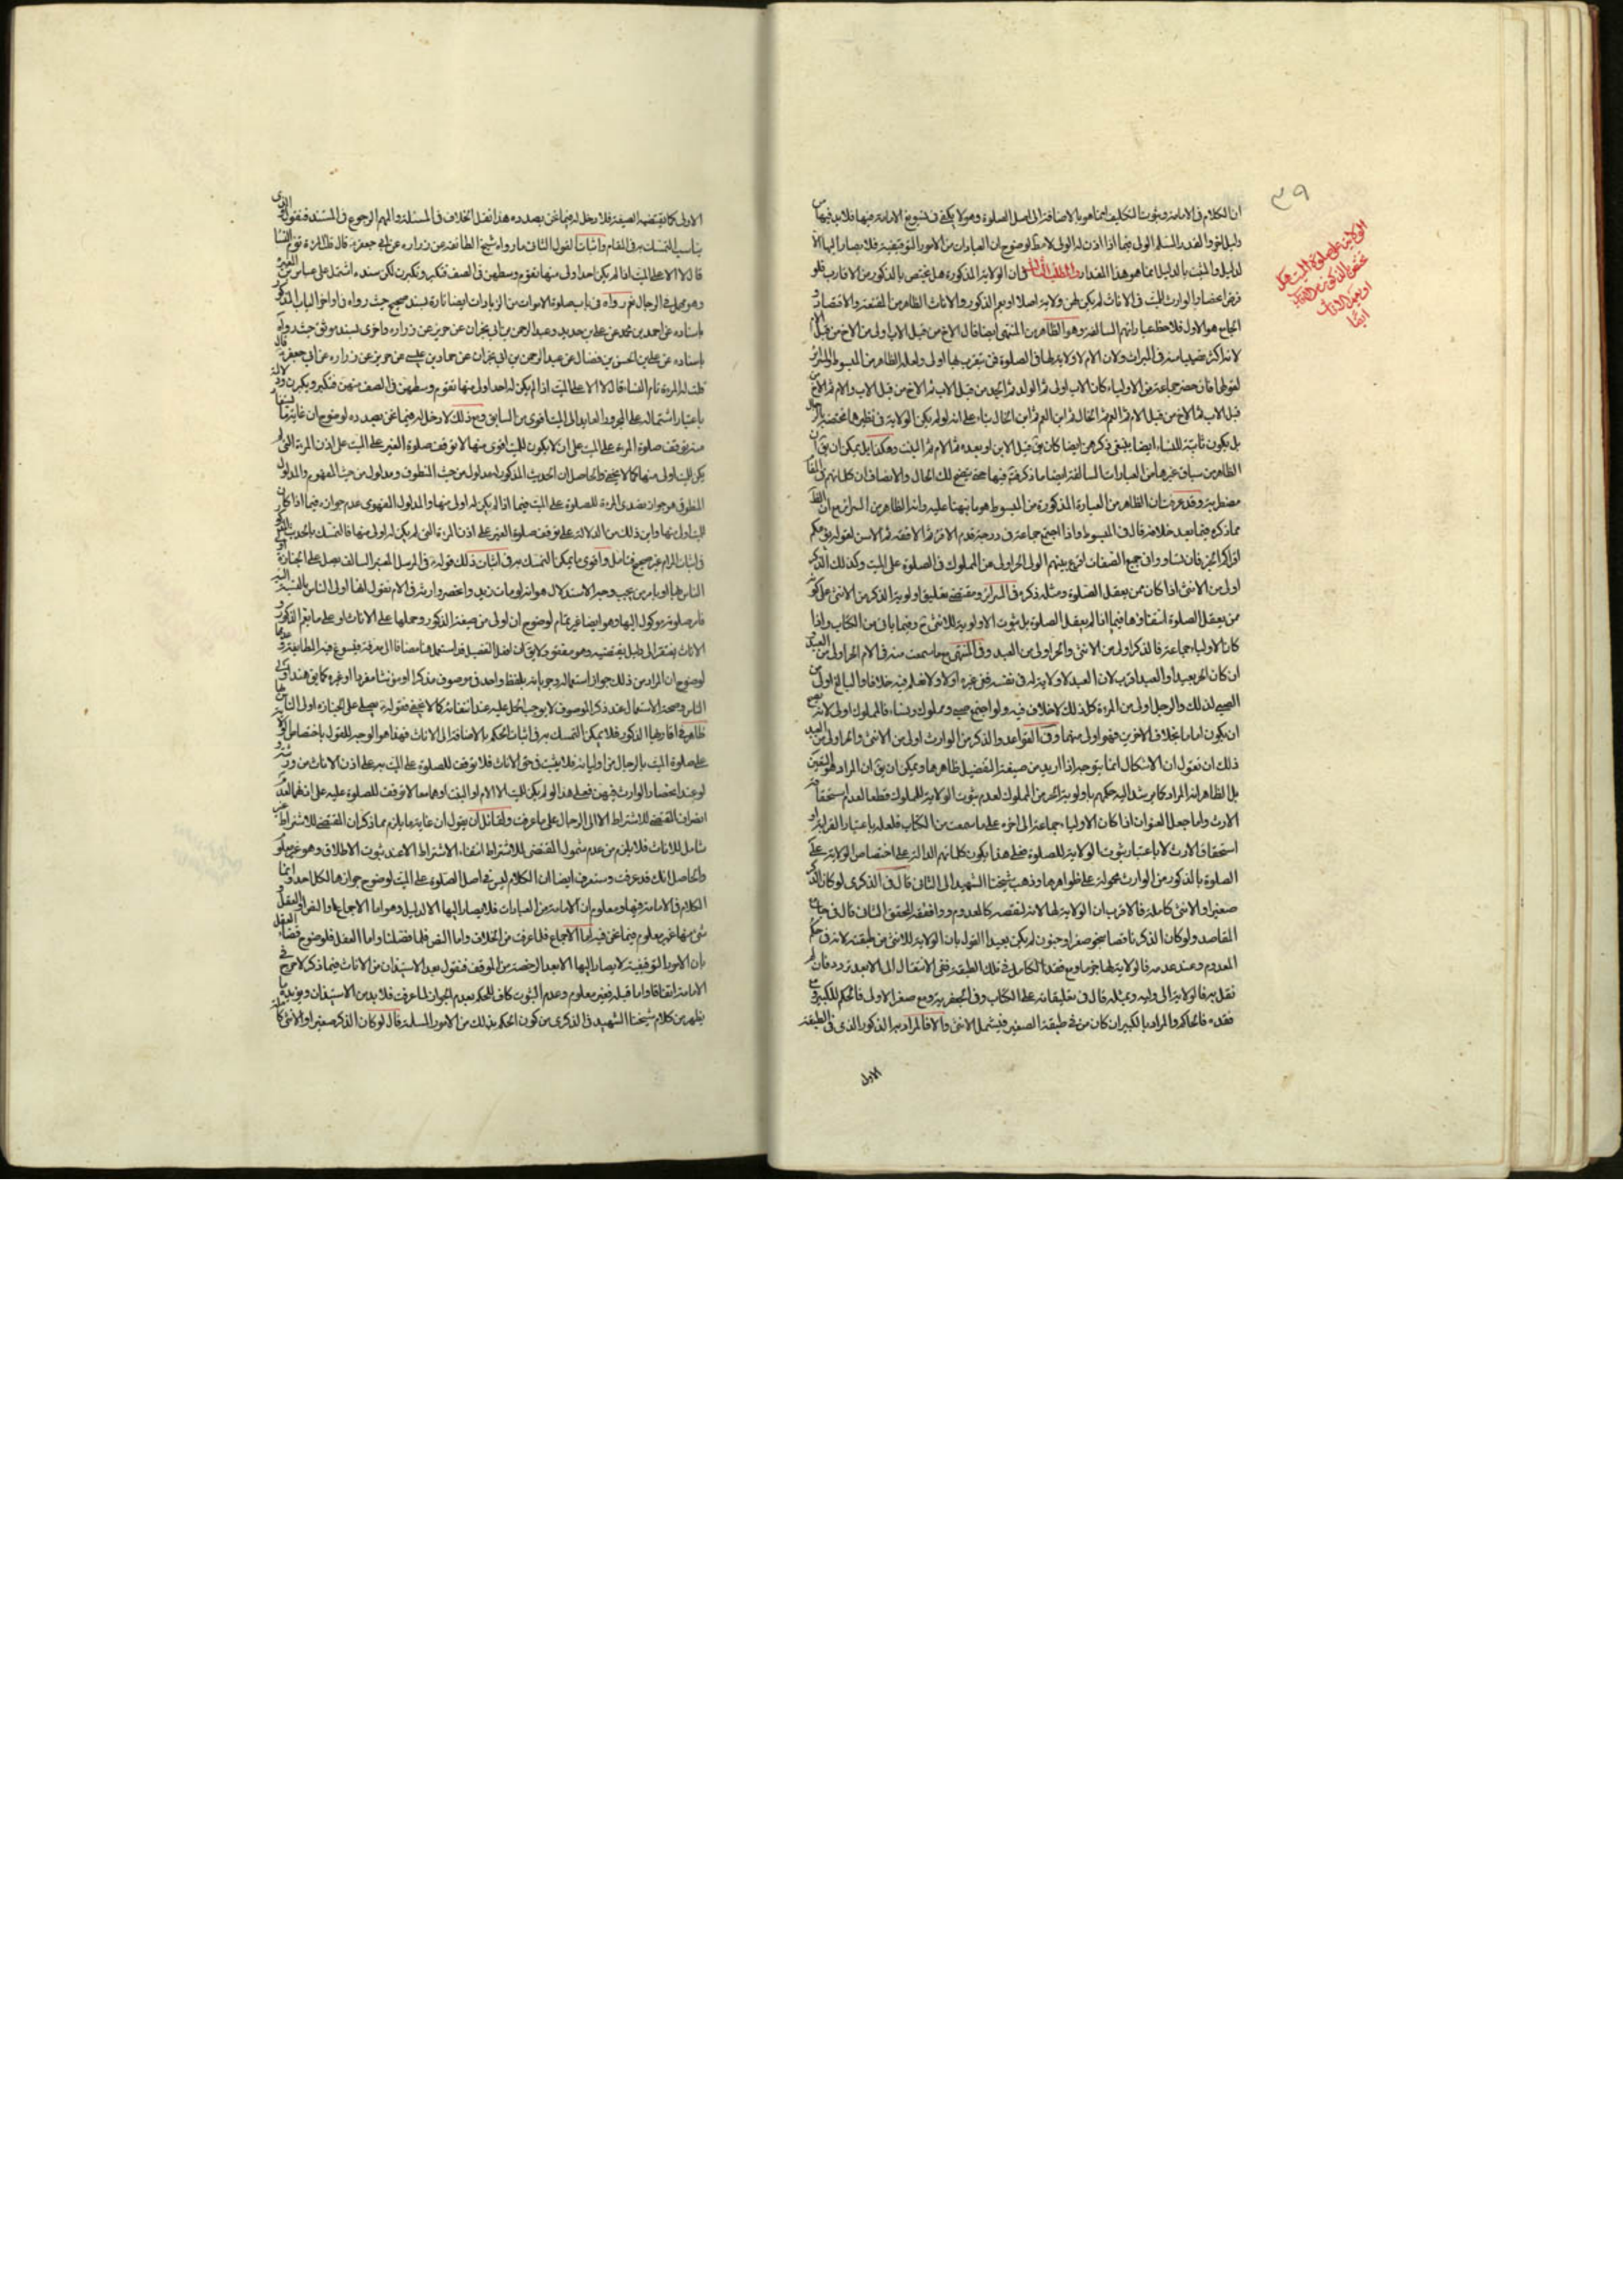 ٣٩
الولاية على صلوة الميت هل
تختص بالذكور من
او يعم الاناث
ايضا
ان الكلام في الامامة وثبوت التكليف انما هو بالاضافة الى اصل الصلوة وهو لا يكفي في تسويغ الامامة فيها فلا بد فيها من
دليل اخر والقدر المسلم الولي فيما اذا اذن له الولي لا مط لوضوح ان العبادات من الامور التوقيفية فلا يصار اليها الا
لدليل والمثبت بالدليل انما هو هذا المقدار والمطلب الثالث في ان الولاية المذكورة هل يختص بالذكور من الاقارب فلو
فرض انحصار الوارث للميت في الاناث لم يكن لهن ولاية اصلا او يعم الذكور والاناث الظاهر من المقنعة والاقتصاد و
لقولها فان حضر جماعة من الاولياء كان الاب اولى ثم الولد ثم الجد من قبل الاب ثم الاخ من قبل الاب والام ثم الاخ من
قبل الاب ثم الاخ من قبل الام ثم العم ثم الخال ثم ابن العم ثم ابن الخال بناء على انه لو لم يكن الولاية في نظرهما مختصة بالرجال
بل يكون ثابتة للنساء ايضا ينبغي ذكرهن ايضا كان يق قبل الابن او بعده ثم الام ثم البنت وهكذا بل يمكن ان يق ان
الظاهر من سياق غيرها من العبارات السالفة ايضا ما ذكر فتأمل فيها حتى يتضح لك الحال والانصاف ان كلماتهم في المقام
مضطربة وقد عرفت ان الظاهر من العبارة المذكورة من المبسوط هو ما نبهنا عليه وانه الظاهر من السرائر مع ان الظ
مما ذكره فيما بعد خلافه قال في المبسوط واذا اجتمع جماعة في درجة قدم الاقرء ثم الافقه ثم الاسن لقوله يؤمكم
اقرأكم الخبر فان تساووا في جميع الصفات اقرع بينهم الولي الحر اولى من المملوك في الصلوة على الميت وكذلك الذكر
اولى من الانثى اذا كان ممن يعقل الصلوة ومثله ذكره في السرائر ومقتضى تعليق اولوية الذكر من الانثى على كونه
ممن يعقل الصلوة انتفاؤها فيما اذا لم يعقل الصلوة بل ثبوت الاولوية للانثى ح وفيما ياتي من الكتاب واذا
كان الاولياء جماعة فالذكر اولى من الانثى والحر اولى من العبد وفي المنتهى بعد ما سمعت منه في الام الحر اولى من العبد
ان كان الحر بعيدا والعبد اقرب لان العبد لا ولاية له في نفسه ففي غيره اولى ولا نعلم فيه خلافا والبالغ اولى من
الصبي لذلك والرجل اولى من المرءة كل ذلك لاخلاف فيه ولو اجتمع صبي ومملوك ونساء فالمملوك اولى لانه يصح
ان يكون اماما بخلاف الاخرين فهو اولى منهما وفي القواعد والذكر من الوارث اولى من الانثى والحر اولى من العبد
ذلك ان نقول ان الاشكال انما يتوجه اذا اريد من صيغة التفضيل ظاهرها ويمكن ان يق ان المراد هو التعين
بل الظاهر انه المراد كما يرشد اليه حكمهم باولوية الحر من المملوك لعدم ثبوت الولاية للمملوك قطعا لعدم استحقاقه
الارث واما جعل العنوان اذا كان الاولياء جماعة الى اخره على ما سمعت من الكتاب فلعله باعتبار القرابة او
استحقاق الارث لا باعتبار ثبوت الولاية للصلوة فعلى هذا يكون كلماتهم الدالة على اختصاص الولاية على
الصلوة بالذكور من الوارث محمولة على ظواهرها وذهب شيخنا الشهيد الى الثاني قال في الذكرى لو كان الذكر
صغيرا والانثى كاملة فالاقرب ان الولاية لها لانه لنقصه كالمعدوم ووافقه المحقق الثاني قال في جامع
المقاصد ولو كان الذكر ناقصا بنحو صغر او جنون لم يكن بعيدا القول بان الولاية للانثى من طبقته لانه في حكم
المعدوم وعند عدمه فالولاية لها جزما ومع فقد الكامل في تلك الطبقة ففي الانتقال الى الابعد تردد فان لم
نقل به فالولاية الى وليه وبمثله قال في تعليقاته على الكتاب وفي الجعفرية ومع صغر الاولى فالحكم للكبير ومع
فقده فالحاكم والمراد بالكبير ان كان من في طبقة الصغير فيشمل الانثى والا فالمراد به الذكور الذي في الطبقة
الاولى
الاولى كما يقتضيه الصيغة فلا دخل له فيما نحن بصدده هذا نقل الخلاف في المسئلة والمهم الرجوع في المستند فنقول الذي
يناسب التمسك به في المقام واثبات القول الثاني ما رواه شيخ الطائفة عن زرارة عن ابي جعفر قال قلت المرءة تؤم النساء
قال لا الا على الميت اذا لم يكن احد اولى منها تقوم وسطهن في الصف فتكبر ويكبرن لكن سنده اشتمل على عباس بن المغيرة
وهو مهمل في الرجال نعم رواه في باب صلوة الاموات من الزيادات ايضا تارة بسند صحيح حيث رواه في اواخر الباب المذكور
باسناده عن احمد بن محمد عن علي بن حديد وعبد الرحمن بن ابي نجران عن حريز عن زرارة واخرى بسند موثق حيث رواه
باسناده عن علي بن الحسن بن فضال عن عبد الرحمن بن ابي نجران عن حماد بن عيسى عن حريز عن زرارة عن ابي جعفر قال
قلت له المرءة تام النساء قال لا الا على الميت اذا لم يكن احد اولى منها تقوم وسطهن في الصف معهن فتكبر ويكبرن ودلالة
منه توقف صلوة المرءة على الميت على ان لا يكون للميت اقوى منها لا توقف صلوة الغير على الميت على اذن المرءة التي لم
يكن للميت اولى منها كما لا يخفى والحاصل ان الحديث المذكور له مدلول من حيث المنطوق ومدلول من حيث المفهوم والمدلول
المنطوقي هو جواز تصدى المرءة للصلوة على الميت فيما اذا لم يكن له اولى منها والمدلول المفهومي عدم جوازه فيما اذا كان
للميت اولى منها واين ذلك من الدلالة على توقف صلوة الغير على اذن المرءة التي لم يكن له اولى منها فالتمسك بالحديث المذكور
في اثبات المرام غير صحيح فتامل واقوى ما يمكن التمسك به في اثبات ذلك قوله في المرسل المعتبر السالف يصلي على الجنازة اولى
الناس بها او يامر من يحب وجه الاستدلال هو انه لو مات زيد وانحصر وارثه في الام نقول انها اولى الناس بالنسبة اليه
فامر صلوته موكول اليها وهو ايضا غير تمام لوضوح ان اولى من صيغة الذكور وحملها على الاناث او على ما يعم الذكور و
لوضوح ان المراد من ذلك جواز استعماله وجريانه بلفظ واحد في موصوف مذكرا او مؤنثا مفردا او غيره كما يق هند اولى
على صلوة الميت بالرجال من اوليائه فلا يثبت في حق الاناث فلا توقف للصلوة على الميت على اذن الاناث من ورثته
لو عند انحصار الوارث فيهن فعلى هذا لو لم يكن للميت الا الام او البنت او هما معا لا توقف للصلوة عليه على اذنهما لعدم
انصراف المقتضي للاشتراط الا الى الرجال على ما عرفت ولقائل ان يقول ان غاية ما يلزم مما ذكر ان المقتضي للاشتراط غير
شامل للاناث فلا يلزم من عدم شمول المقتضى للاشتراط انتفاء الاشتراط الا عند ثبوت الاطلاق وهو غير معلوم
والحاصل انك قد عرفت وستعرف ايضا ان الكلام ليس في اصل الصلوة على الميت لوضوح جوازها لكل احد وانما
الكلام في الامامة فيها ومعلوم ان الامامة من العبادات فلا يصار اليها الا لدليل وهو اما الاجماع او النص او العقل
شئ منها غير معلوم فيما نحن فيه اما الاجماع فلما عرفت من الخلاف واما النص فلما فصلنا واما العقل فلوضوح قضاء العقل
بان الامور التوقيفية لا يصار اليها الا بعد الرخصة من الموقف فنقول بعد الاستيذان من الاناث فيما ذكر لا حرج في
الامامة اتفاقا واما قبله فغير معلوم وعدم الثبوت كاف للحكم بعدم الجواز لما عرفت فلا بد من الاستيذان ويؤيده ما
يظهر من كلام شيخنا الشهيد في الذكرى من كون الحكم بذلك من الامور المسلمة قال لو كان الذكر صغيرا والانثى كاملة